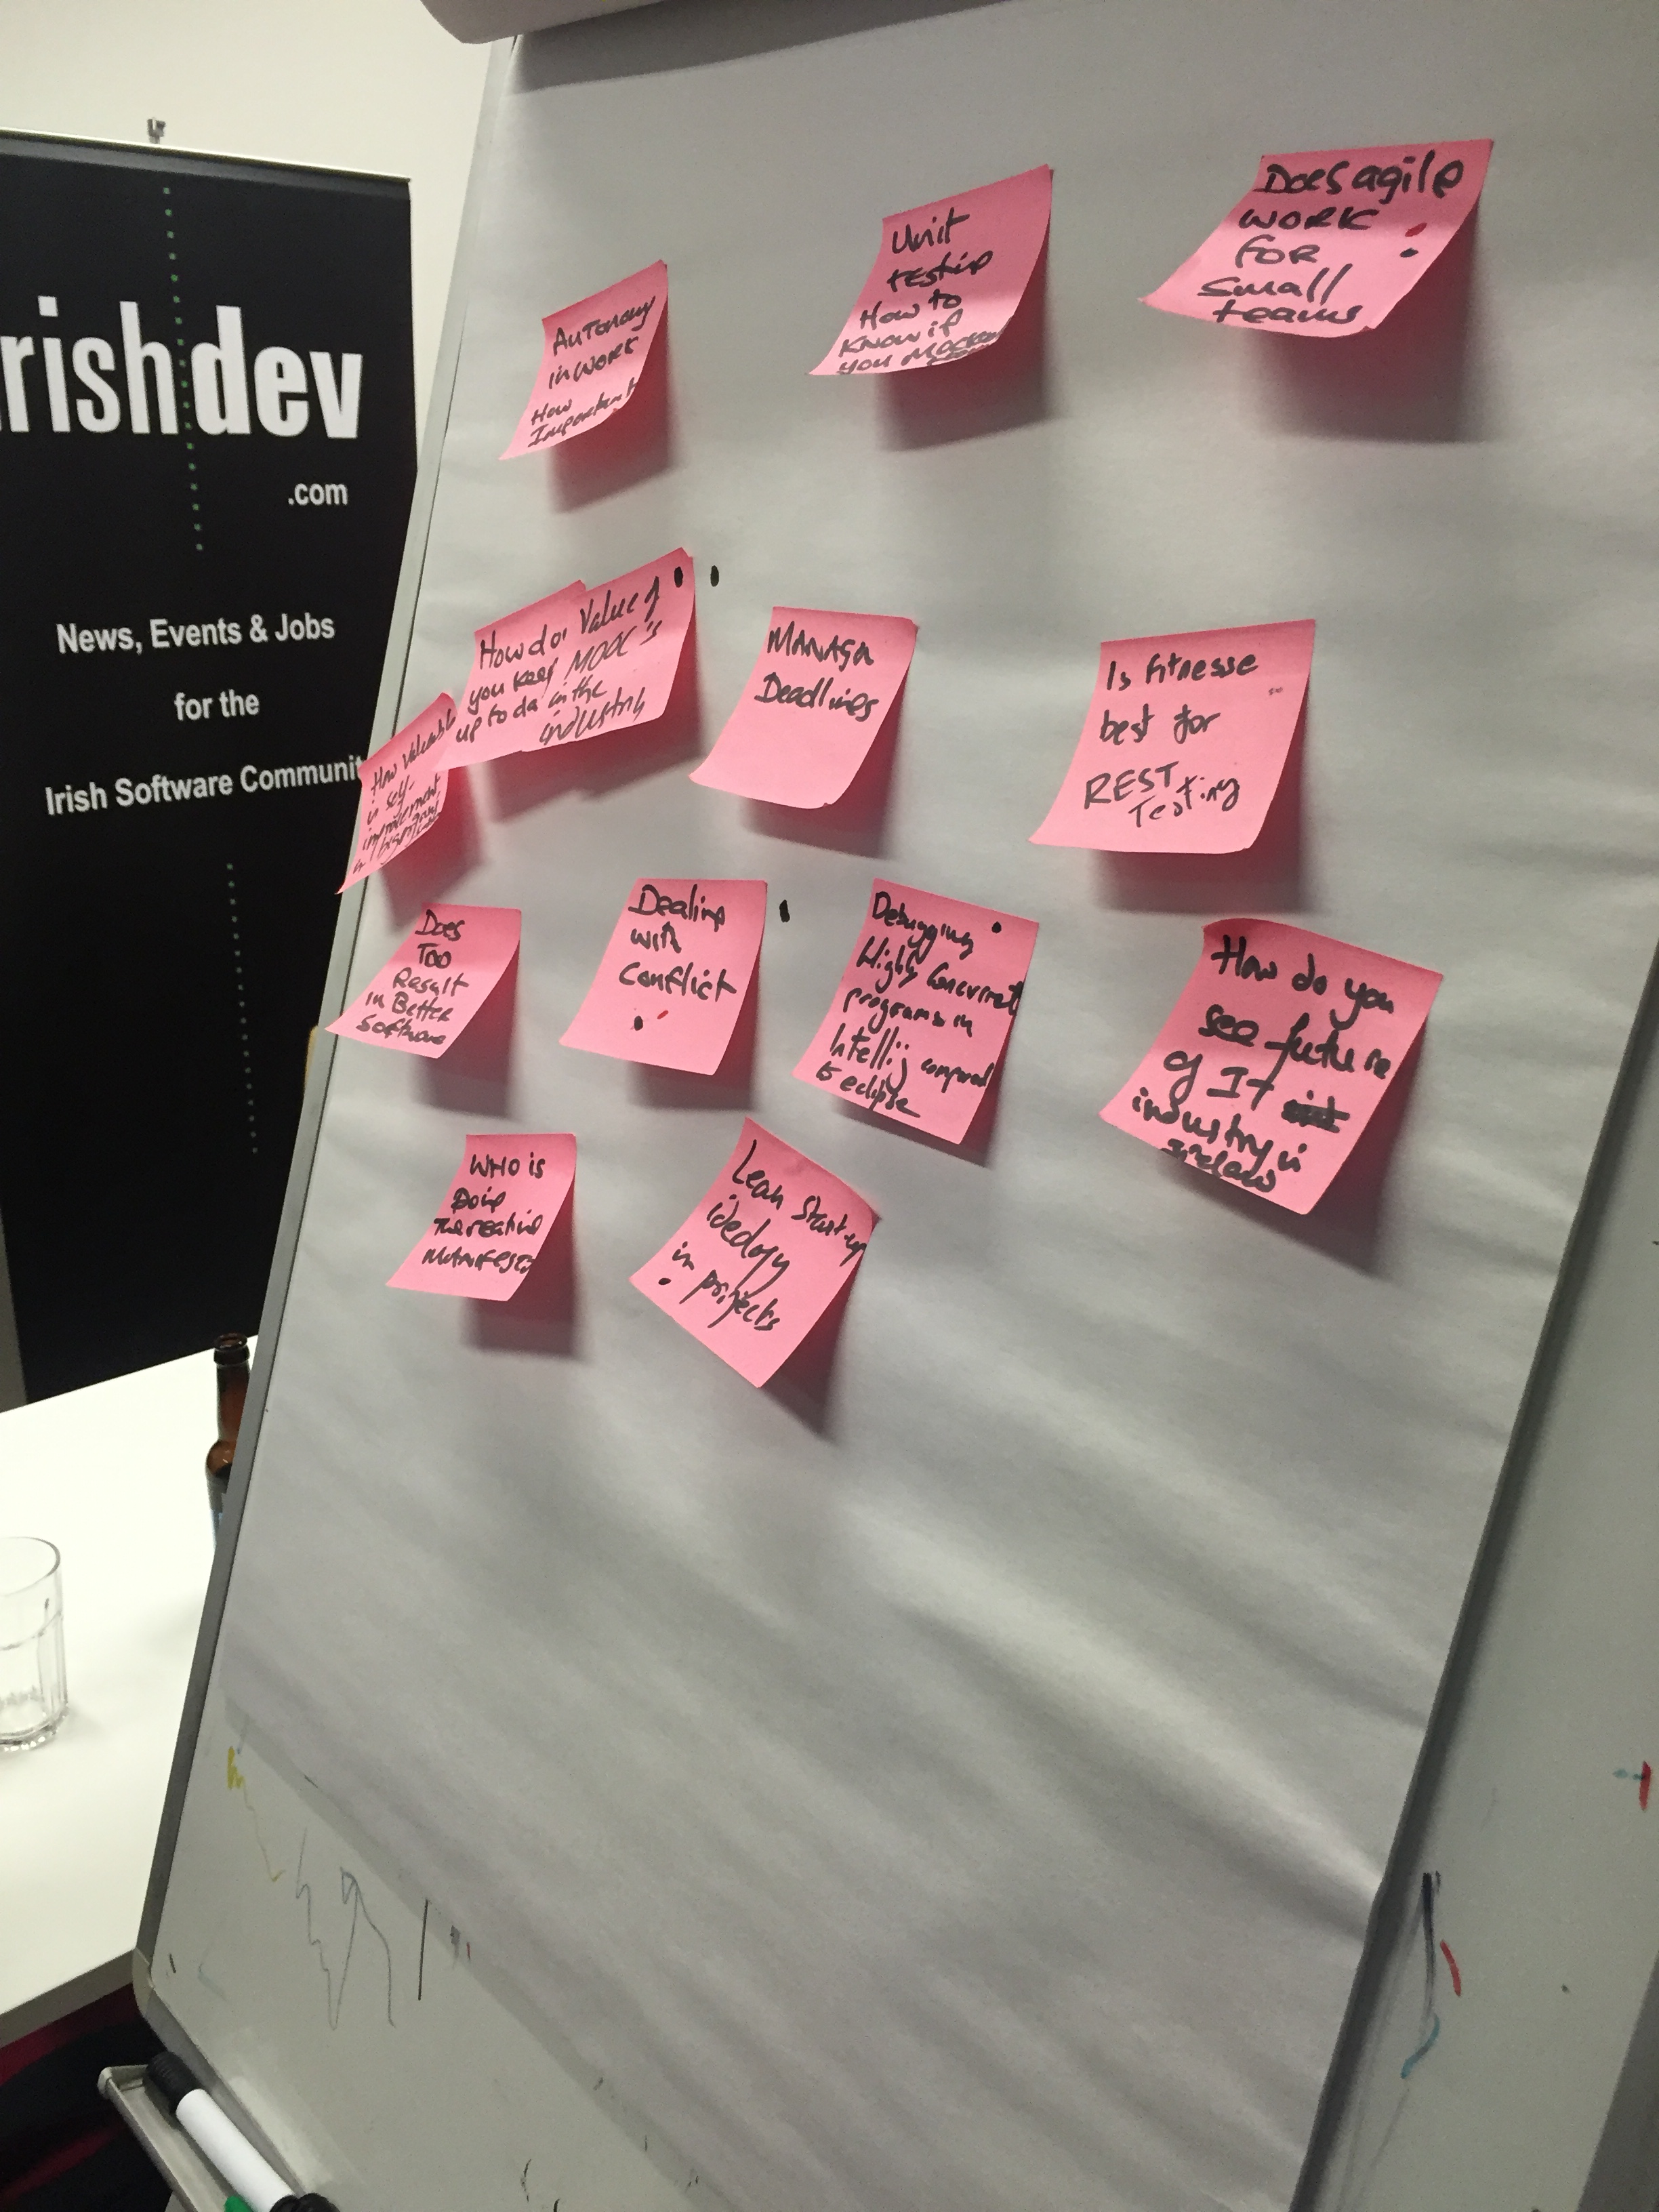 rishdev
.com
News, Events & Jobs
for the
Irish Software Communit
Autonomy
in work
How
Important
Unit
testing
How to
Know if
you Mocked
Does agile
work
for
small
teams
How valuable
is self-
improvement
How do
you keep
up to da
Value of
MOOC's
in the
industry
Manage
Deadlines
Is fitnesse
best for
REST
Testing
Does
TDD
Result
in Better
Software
Dealing
with
Conflict
Debugging
Highly Concurrent
programs in
Intellij compared
to eclipse
How do you
see future
of IT
industry in
Ireland
Who is
Doing
Lean Start-up
ideology
in projects